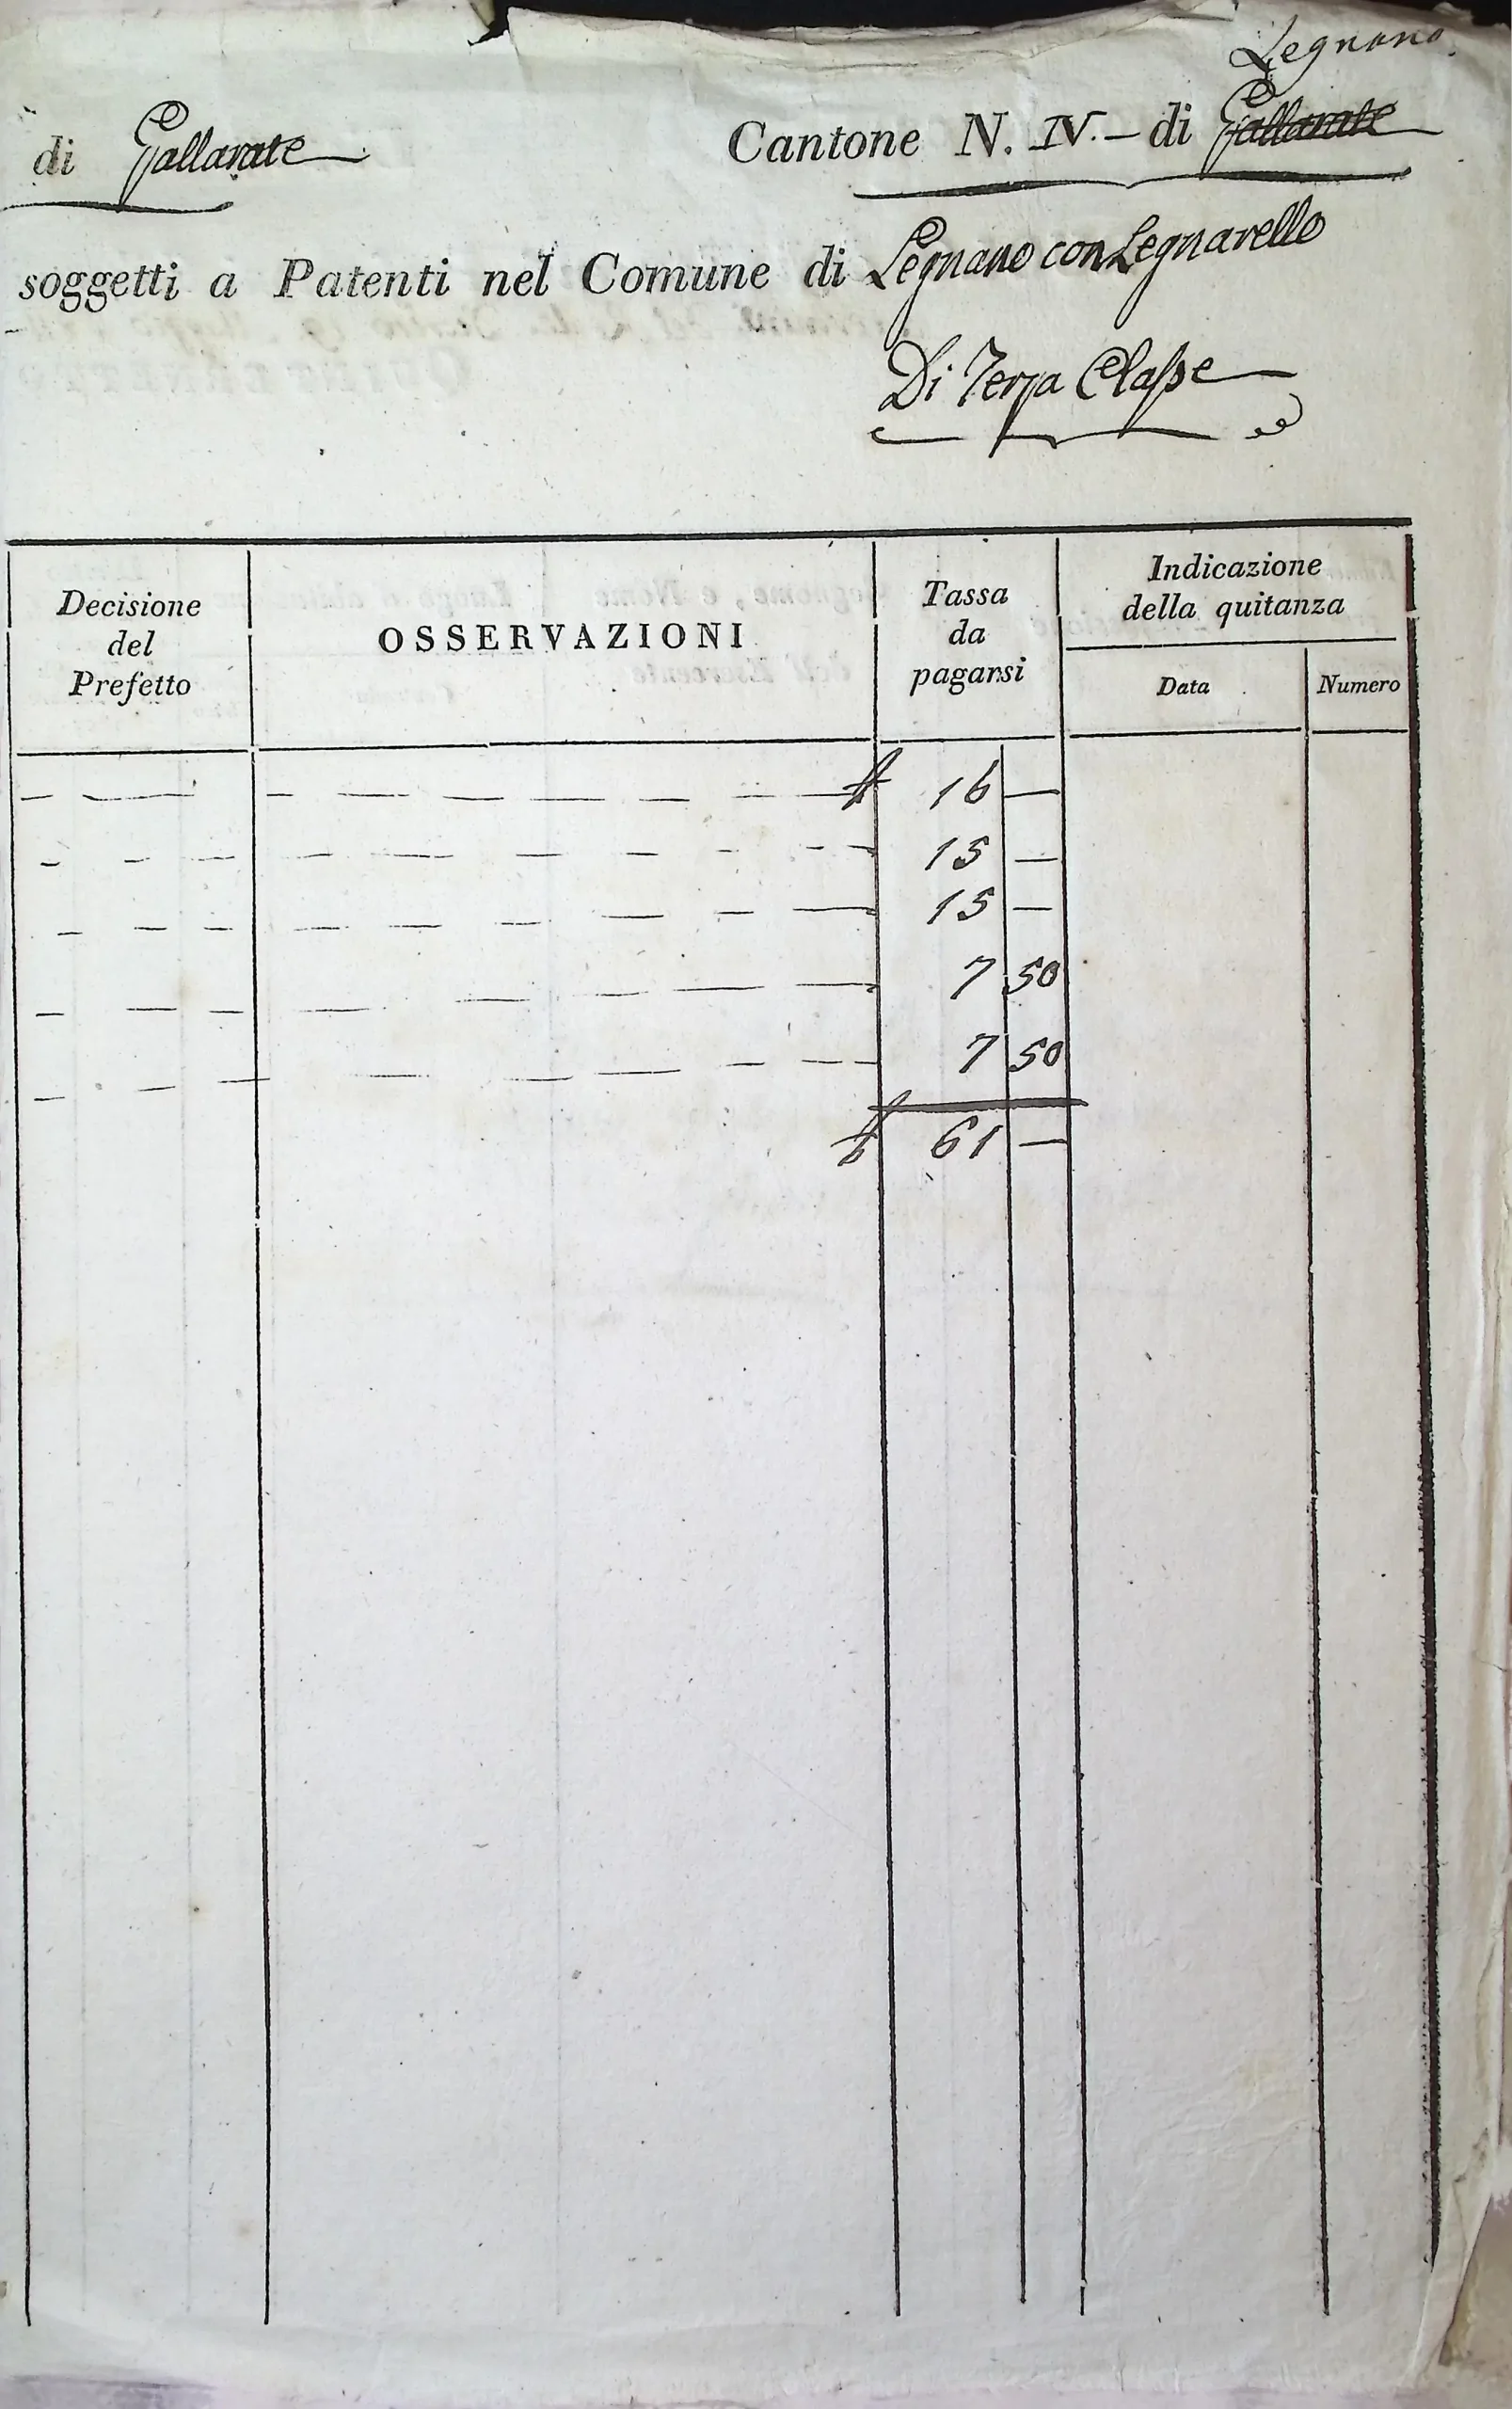 Legnano.
di Gallarate Cantone N. IV. - di Gallarate
soggetti a Patenti nel Comune di Legnano con Legnarello
Di Terza Classe
Decisione
del
Prefetto
OSSERVAZIONI
Tassa
da
pagarsi
Indicazione
della quitanza
Data
Numero
16 —
15 —
15 —
7 50
7 50
61 —